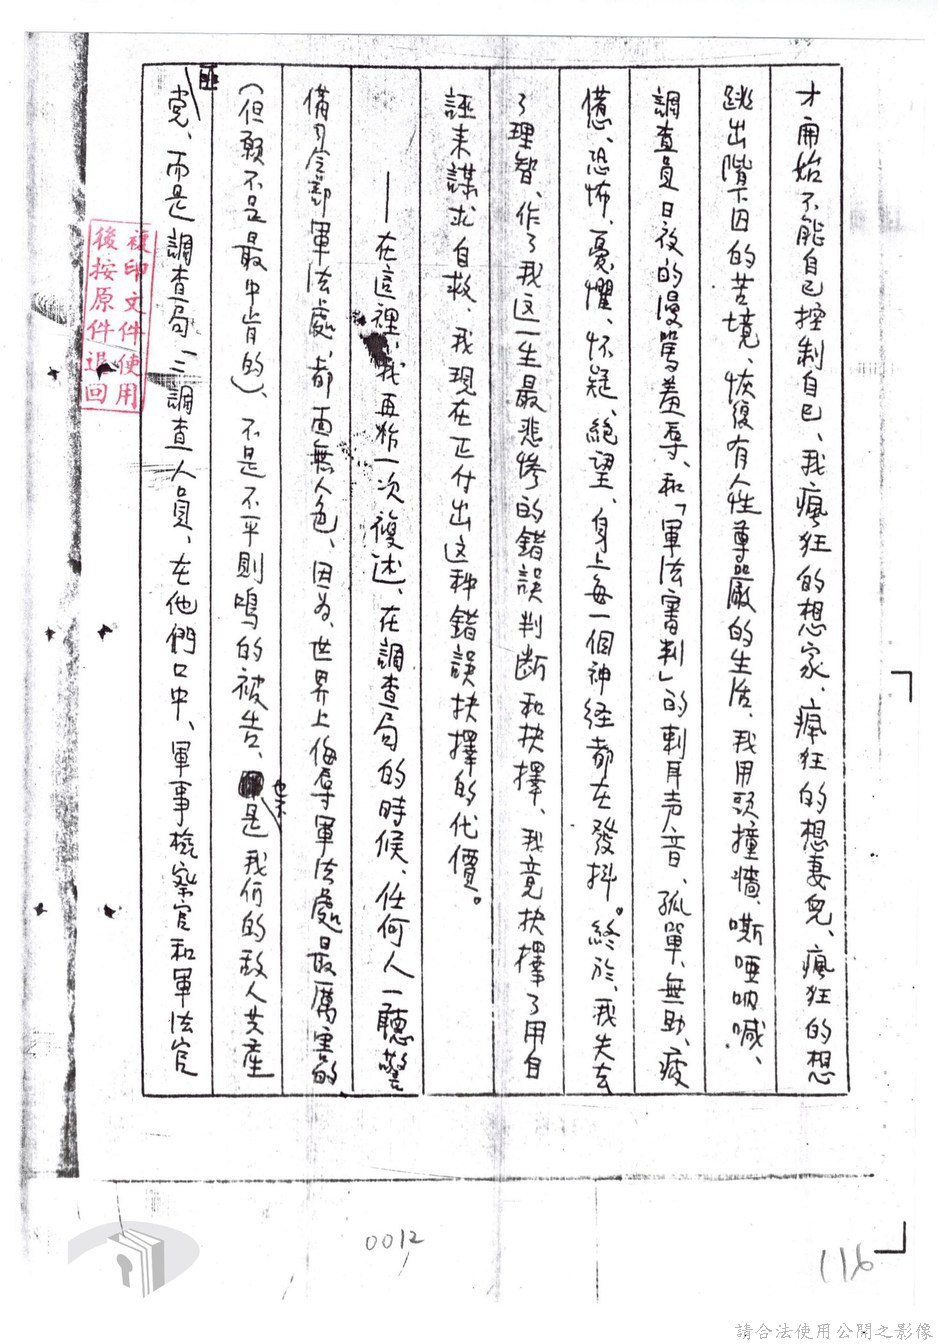 才開始不能自己控制自己、我瘋狂的想家、瘋狂的想妻兒、瘋狂的想
跳出階下囚的苦境、恢復有人性尊嚴的生活、我用頭撞墻、嘶啞吶喊、
調查員日夜的謾罵羞辱、和「軍法審判」的刺耳声音、孤單、無助、疲
憊、恐怖、憂懼、怀疑、絕望、身上每一個神经都在發抖。終於、我失去
了理智、作了我这一生最悲慘的錯誤判断和抉擇、我竟抉擇了用自
誣來謀求自救、我現在正付出这种錯誤抉擇的代價。
——在這裡、我再作一次複述、在調查局的時候、任何人一聽警
備司令部軍法處、都面無人色、因为、世界上侮辱軍法處最厲害的
(但願不是最中肯的)、不是不平則鳴的被告、也不是我们的敌人共產
匪党、而是調查局、調查人員、在他們口中、軍事檢察官和軍法官
複印文件使用
後按原件退回
0012
116
請合法使用公開之影像